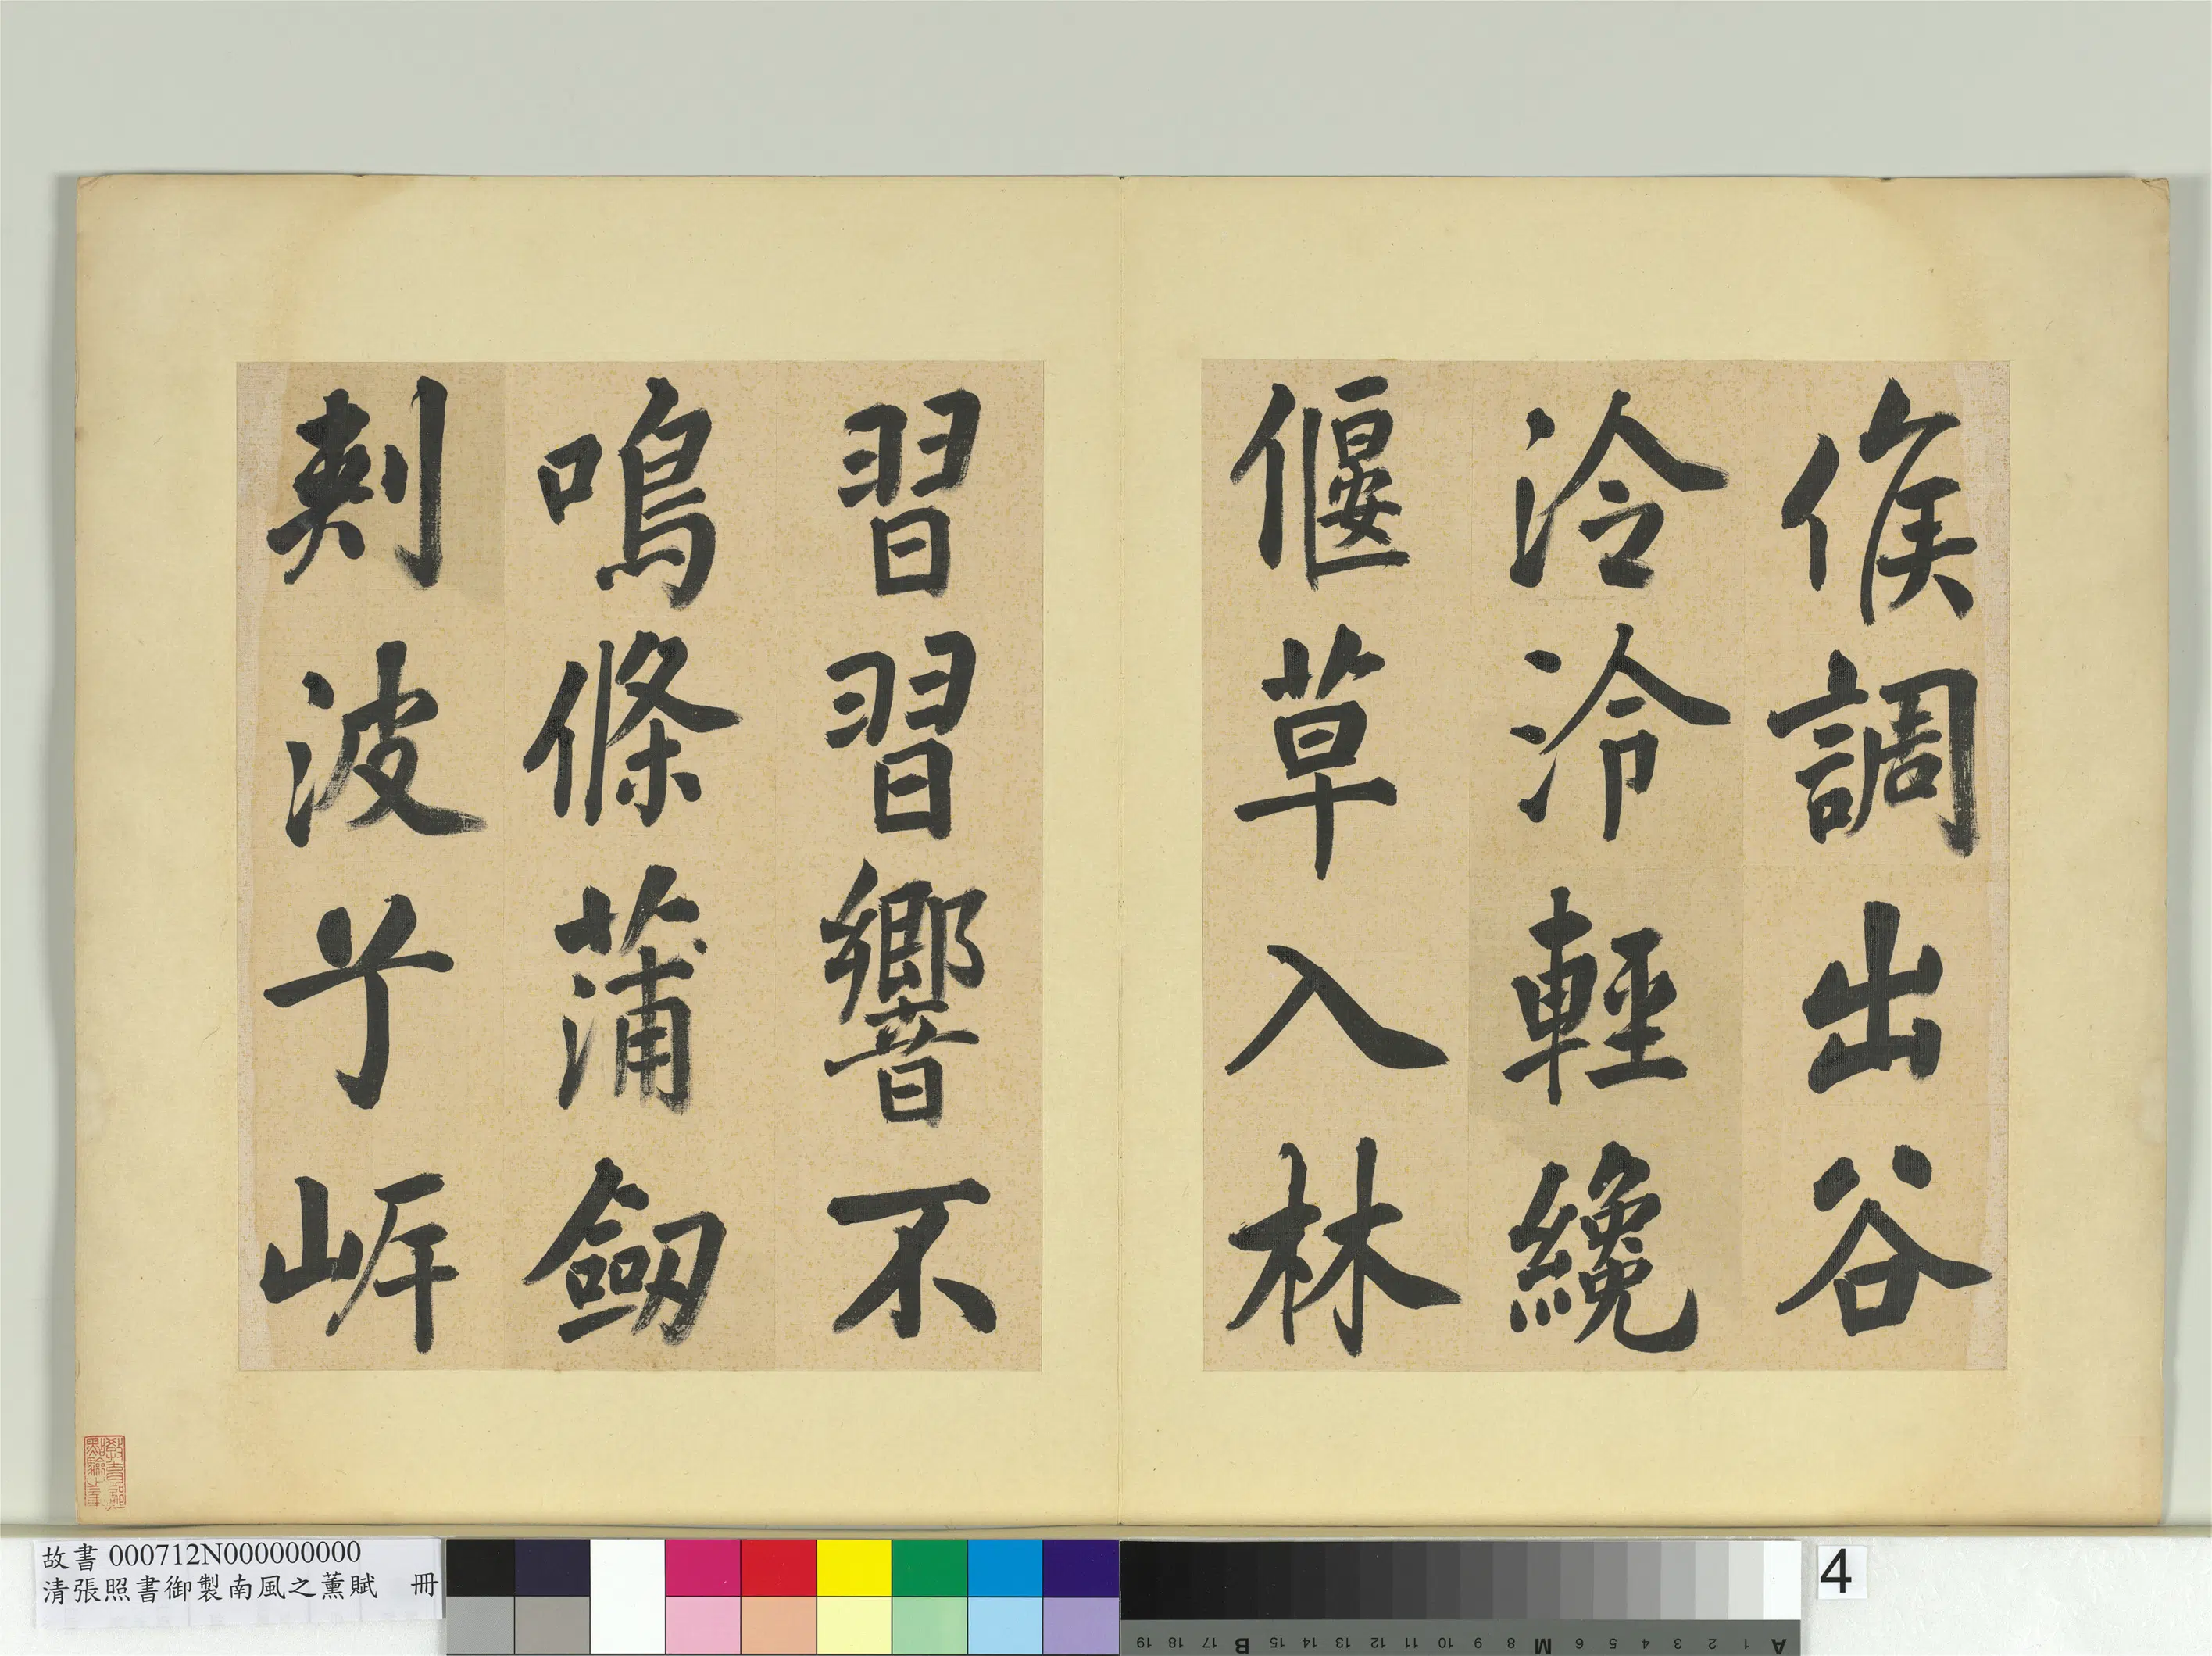 候調出谷
泠泠輕纔
偃草入林
習習響不
鳴條蒲劒
刾波兮㟁
教育部
點驗之章
故書 000712N000000000
清張照書御製南風之薰賦 冊
4
A 1 2 3 4 5 6 M 8 9 10 11 12 13 14 15 B 17 18 19